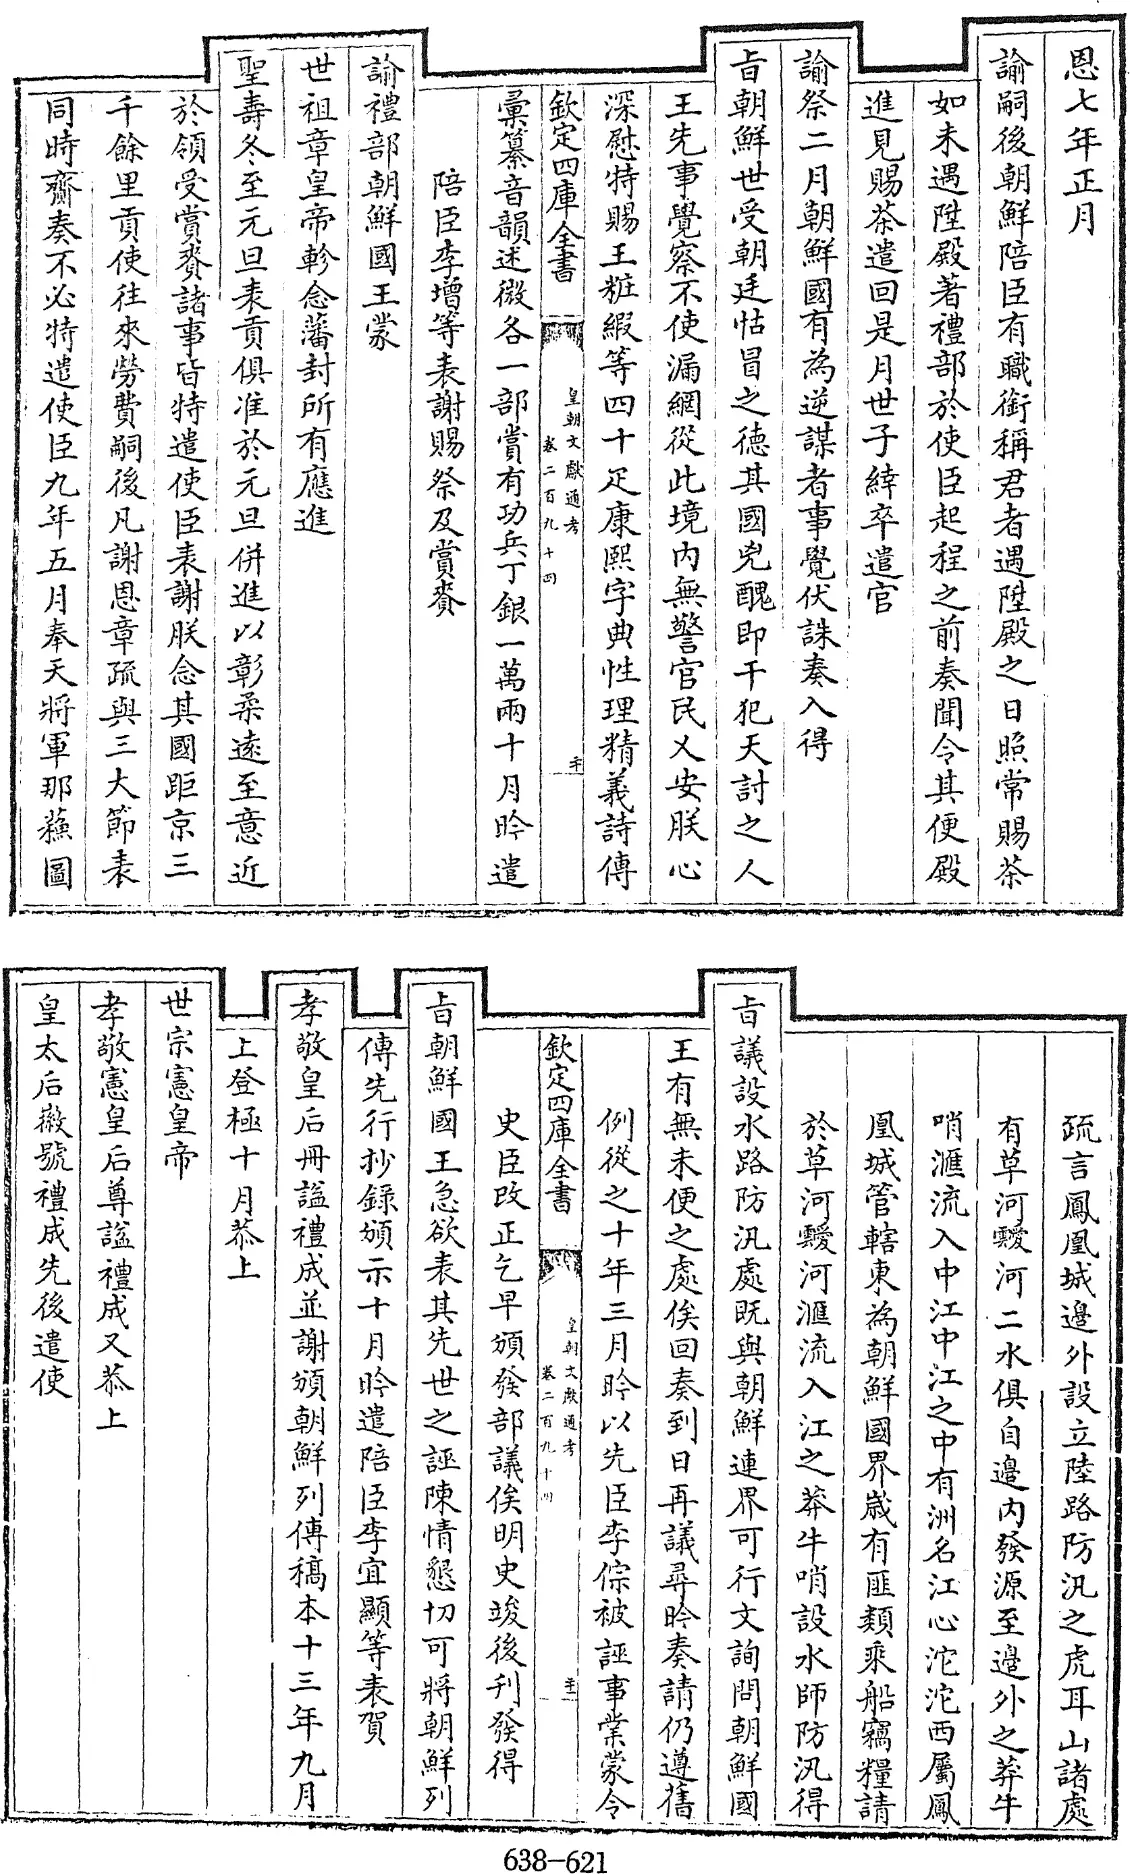 恩七年正月
諭嗣後朝鮮陪臣有職銜稱君者遇陞殿之日照常賜茶
如未遇陞殿著禮部於使臣起程之前奏聞令其便殿
進見賜茶遣回是月世子緯卒遣官
諭祭二月朝鮮國有為逆謀者事覺伏誅奏入得
旨朝鮮世受朝廷怙冒之德其國兇醜即干犯天討之人
王先事覺察不使漏網從此境内無警官民乂安朕心
深慰特賜王粧緞等四十疋康熙字典性理精義詩傳
欽定四庫全書
皇朝文獻通考
卷二百九十四
彙纂音韻述微各一部賞有功兵丁銀一萬兩十月昑遣
陪臣李增等表謝賜祭及賞賚
諭禮部朝鮮國王蒙
世祖章皇帝軫念藩封所有應進
聖壽冬至元旦表貢俱准於元旦併進以彰柔遠至意近
於領受賞賚諸事皆特遣使臣表謝朕念其國距京三
千餘里貢使往來勞費嗣後凡謝恩章疏與三大節表
同時齎奏不必特遣使臣九年五月奉天將軍那蘇圖
疏言鳳凰城邊外設立陸路防汛之虎耳山諸處
有草河靉河二水俱自邊内發源至邊外之莽牛
哨滙流入中江中江之中有洲名江心沱沱西屬鳳
凰城管轄東為朝鮮國界嵗有匪類乘船竊糧請
於草河靉河滙流入江之莽牛哨設水師防汛得
旨議設水路防汛處既與朝鮮連界可行文詢問朝鮮國
王有無未便之處俟回奏到日再議尋昑奏請仍遵舊
例從之十年三月昑以先臣李倧被誣事業蒙令
欽定四庫全書
皇朝文獻通考
卷二百九十四
史臣改正乞早頒發部議俟明史竣後刊發得
旨朝鮮國王急欲表其先世之誣陳情懇切可將朝鮮列
傳先行抄録頒示十月昑遣陪臣李宜顯等表賀
孝敬皇后冊諡禮成並謝頒朝鮮列傳稿本十三年九月
上登極十月恭上
世宗憲皇帝
孝敬憲皇后尊諡禮成又恭上
皇太后徽號禮成先後遣使
638-621